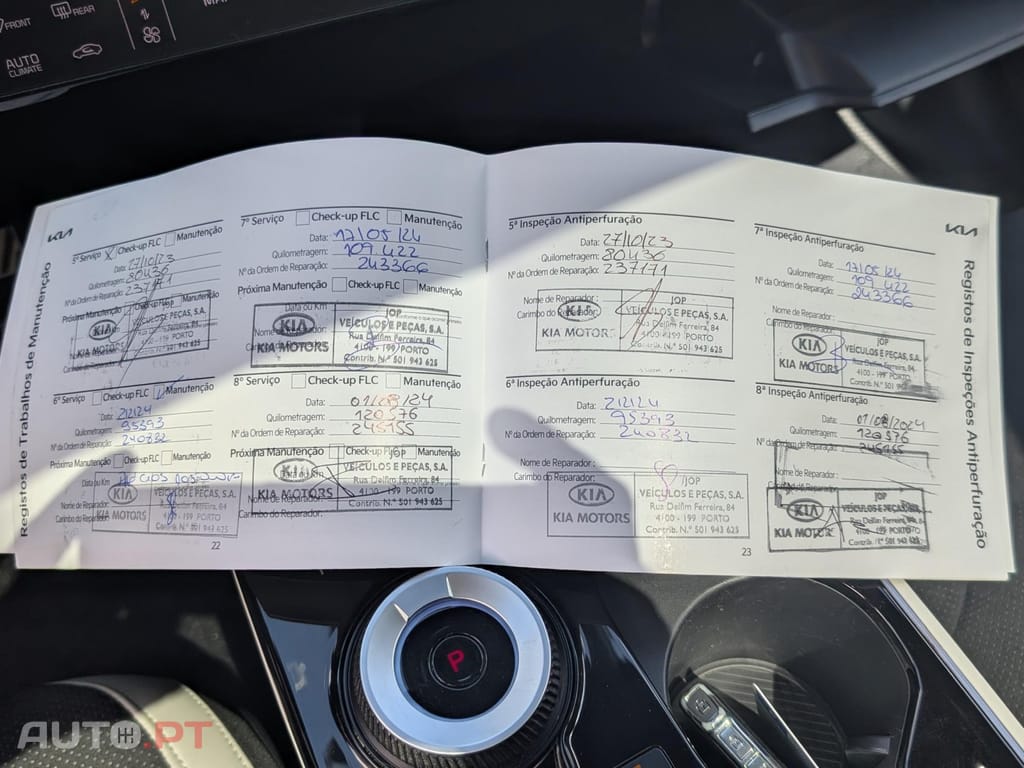 FRONT
REAR
AUTO
CLIMATE
KIA
Registos de Trabalhos de Manutenção
5º Serviço Check-up FLC Manutenção
Data: 27/10/23
Quilometragem: 80436
Nº da Ordem de Reparação: 237171
Próxima Manutenção
KIA
KIA MOTORS
JOP
VEÍCULOS E PEÇAS, S.A.
6º Serviço Check-up FLC Manutenção
Data: 2/2/24
Quilometragem: 95393
Nº da Ordem de Reparação: 240832
Próxima Manutenção Check-up FLC Manutenção
Data ou Km
Nome de Reparador:
Carimbo do Reparador:
KIA
KIA MOTORS
VEÍCULOS E PEÇAS, S.A.
Rua Delfim Ferreira, 84
4100 - 199 PORTO
Contrib. N.º 501 943 625
22
7º Serviço Check-up FLC Manutenção
Data: 17/05/24
Quilometragem: 109 422
Nº da Ordem de Reparação: 243366
Próxima Manutenção Check-up FLC Manutenção
Data ou Km
KIA
KIA MOTORS
JOP
VEÍCULOS E PEÇAS, S.A.
Rua Delfim Ferreira, 84
4100 - 199 PORTO
Contrib. N.º 501 943 625
8º Serviço Check-up FLC Manutenção
Data: 01/08/24
Quilometragem: 120576
Nº da Ordem de Reparação: 245155
Próxima Manutenção Check-up FLC Manutenção
KIA
KIA MOTORS
JOP
VEÍCULOS E PEÇAS, S.A.
Rua Delfim Ferreira, 84
4100 - 199 PORTO
Contrib. N.º 501 943 625
Nome de Reparador:
Carimbo do Reparador:
5ª Inspeção Antiperfuração
Data: 27/10/23
Quilometragem: 80436
Nº da Ordem de Reparação: 237171
Nome de Reparador:
Carimbo do Reparador:
KIA
KIA MOTORS
JOP
VEÍCULOS E PEÇAS, S.A.
Rua Delfim Ferreira, 84
4100 - 199 PORTO
Contrib. N.º 501 943 625
6ª Inspeção Antiperfuração
Data: 2/2/24
Quilometragem: 95393
Nº da Ordem de Reparação: 240832
Nome de Reparador:
Carimbo do Reparador:
KIA
KIA MOTORS
JOP
VEÍCULOS E PEÇAS, S.A.
Rua Delfim Ferreira, 84
4100 - 199 PORTO
Contrib. N.º 501 943 625
23
7ª Inspeção Antiperfuração
Data: 17/05/24
Quilometragem: 109 422
Nº da Ordem de Reparação: 243366
Nome de Reparador:
KIA
KIA MOTORS
JOP
VEÍCULOS E PEÇAS, S.A.
Rua Delfim Ferreira, 84
4100 - 199 PORTO
Contrib. N.º 501 943 625
8ª Inspeção Antiperfuração
Data: 01/08/2024
Quilometragem: 120576
Nº da Ordem de Reparação:
Nome de Reparador:
KIA
KIA MOTORS
JOP
VEÍCULOS E PEÇAS, S.A.
Rua Delfim Ferreira, 84
4100 - 199 PORTO
Contrib. N.º 501 943 625
KIA
Registos de Inspeções Antiperfuração
P
AUTO.PT